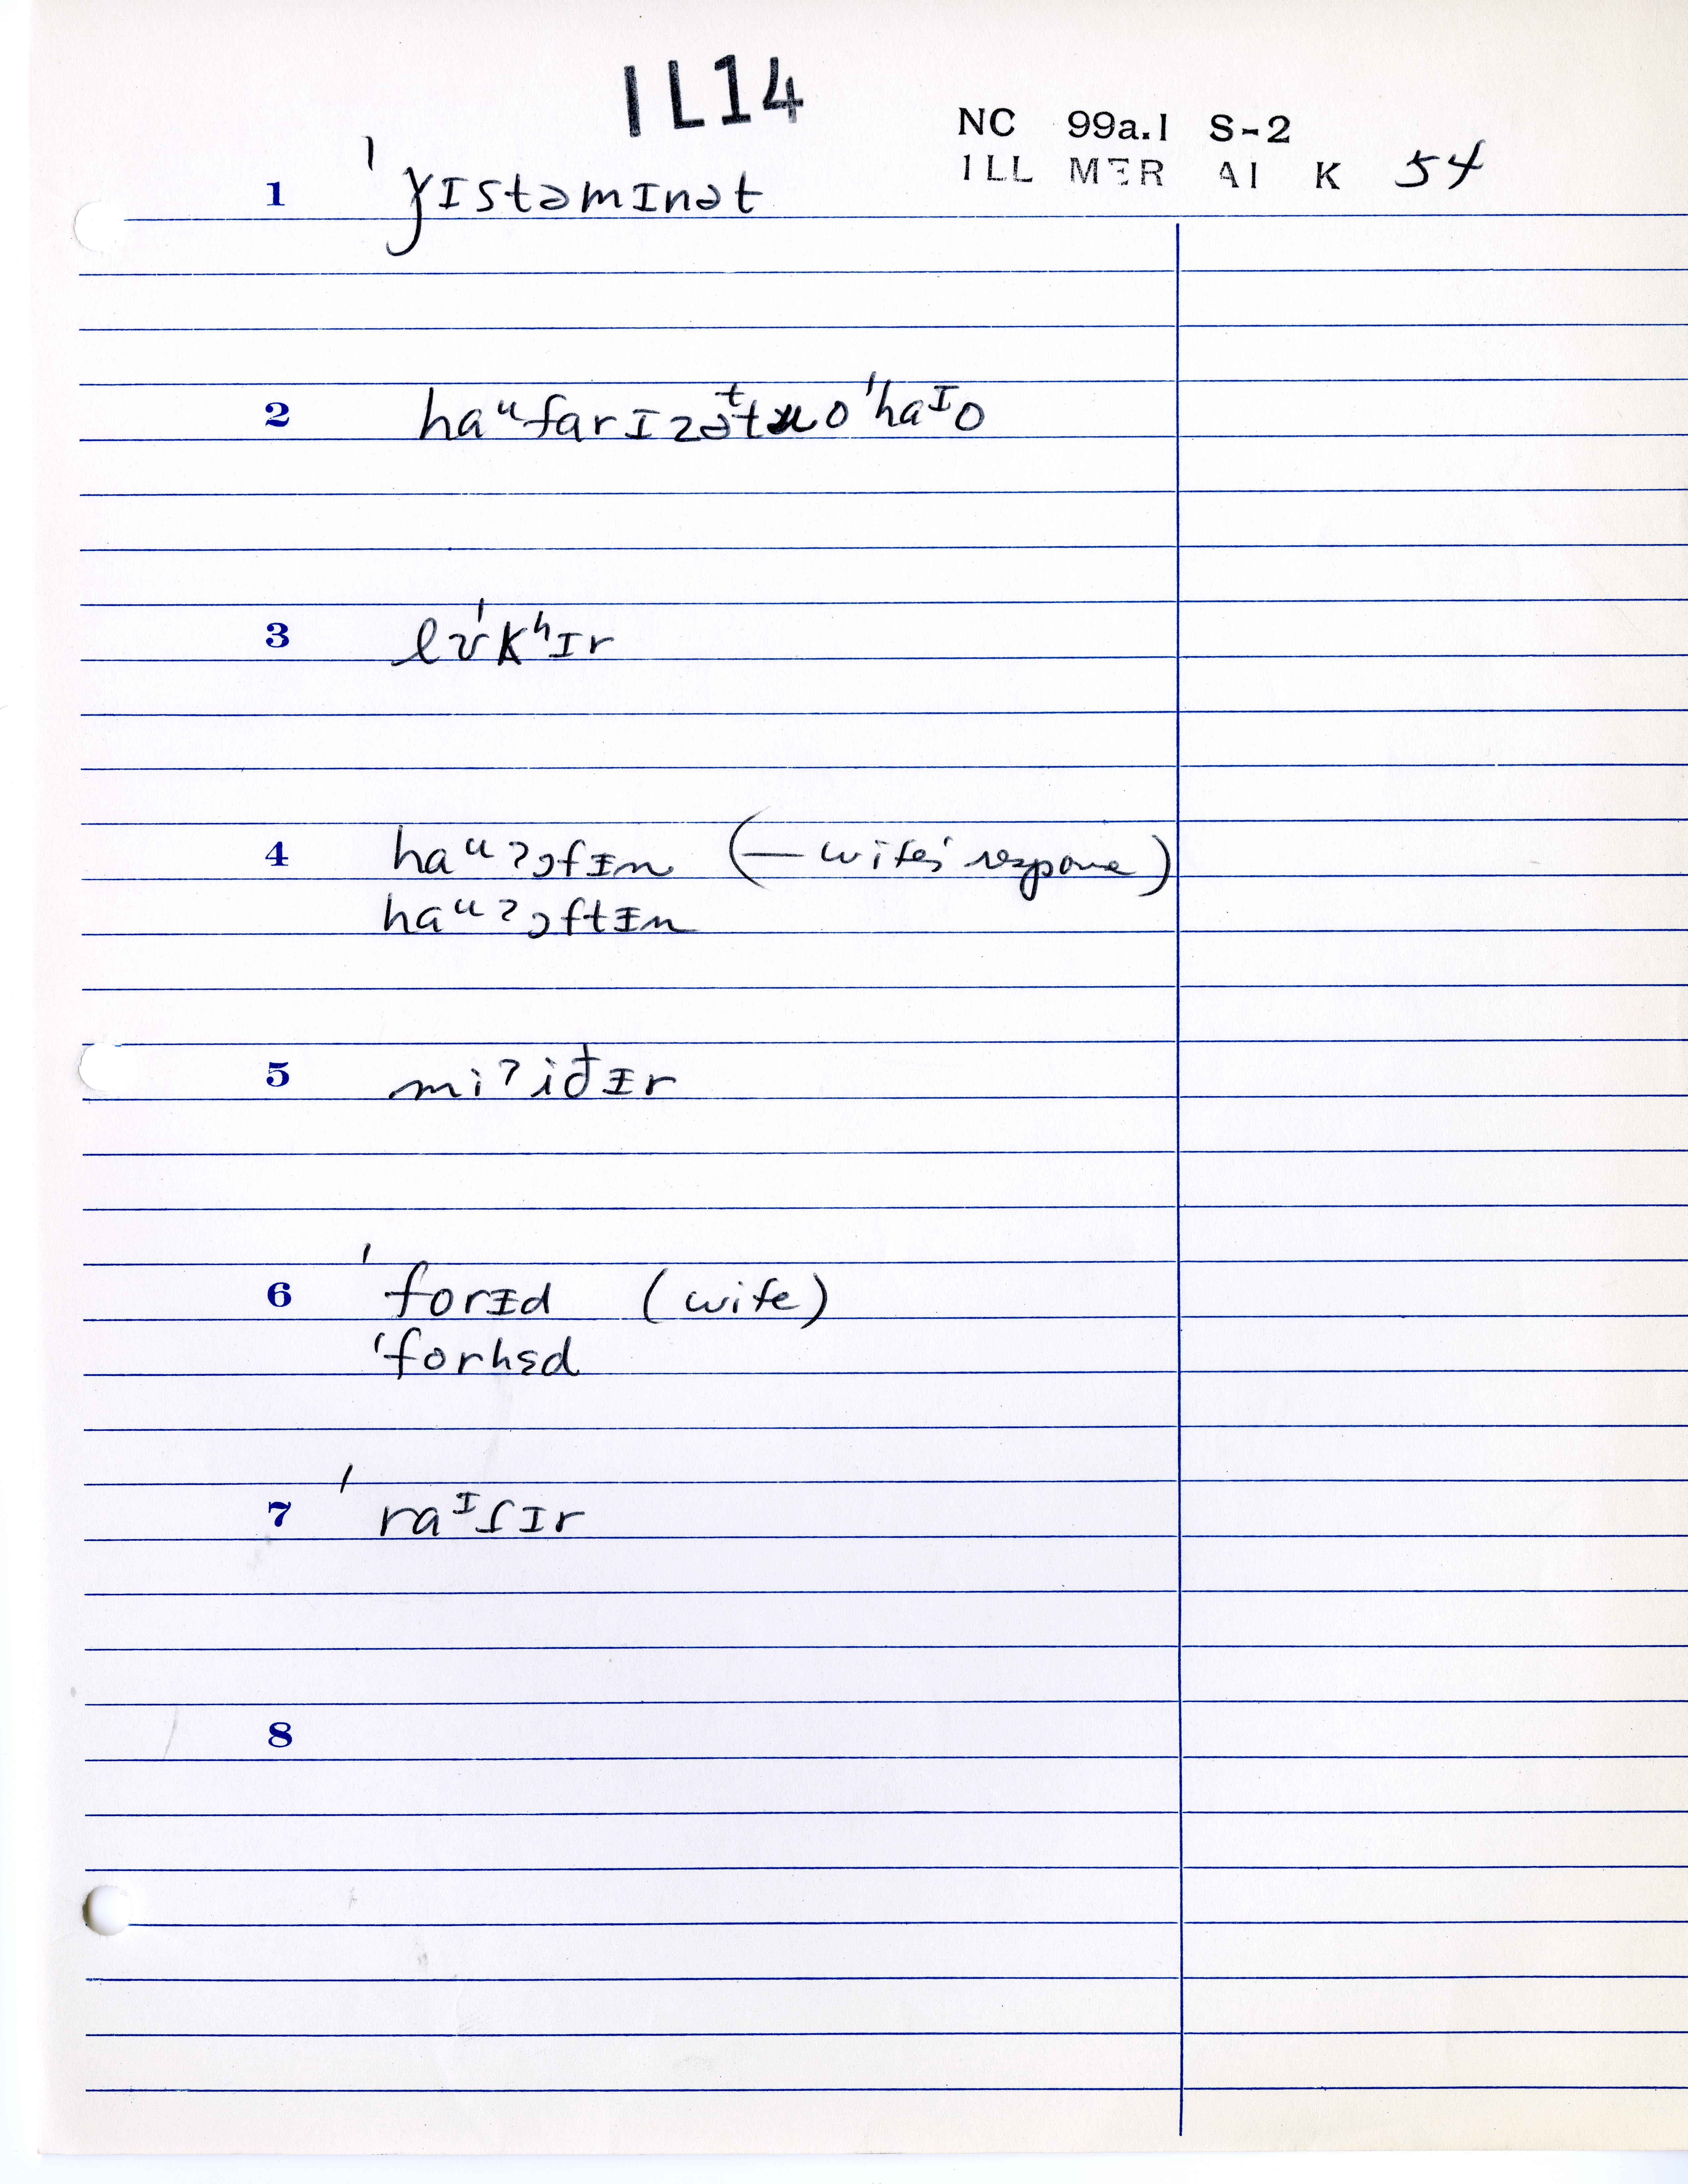 IL14
NC 99a.1 S-2
ILL MER AI K 54
1 ˈɣɪstəmɪnət
2 haᵘfarɪzəᵗtuoˈhaᴵo
3 lʊˈkʰɪr
4 haᵘʔɔfᵻn (— wife's response)
haᵘʔɔftᵻn
5 miʔiđᵻr
6 ˈforᵻd (wife)
ˈforhɛd
7 ˈraᴵʃɪr
8